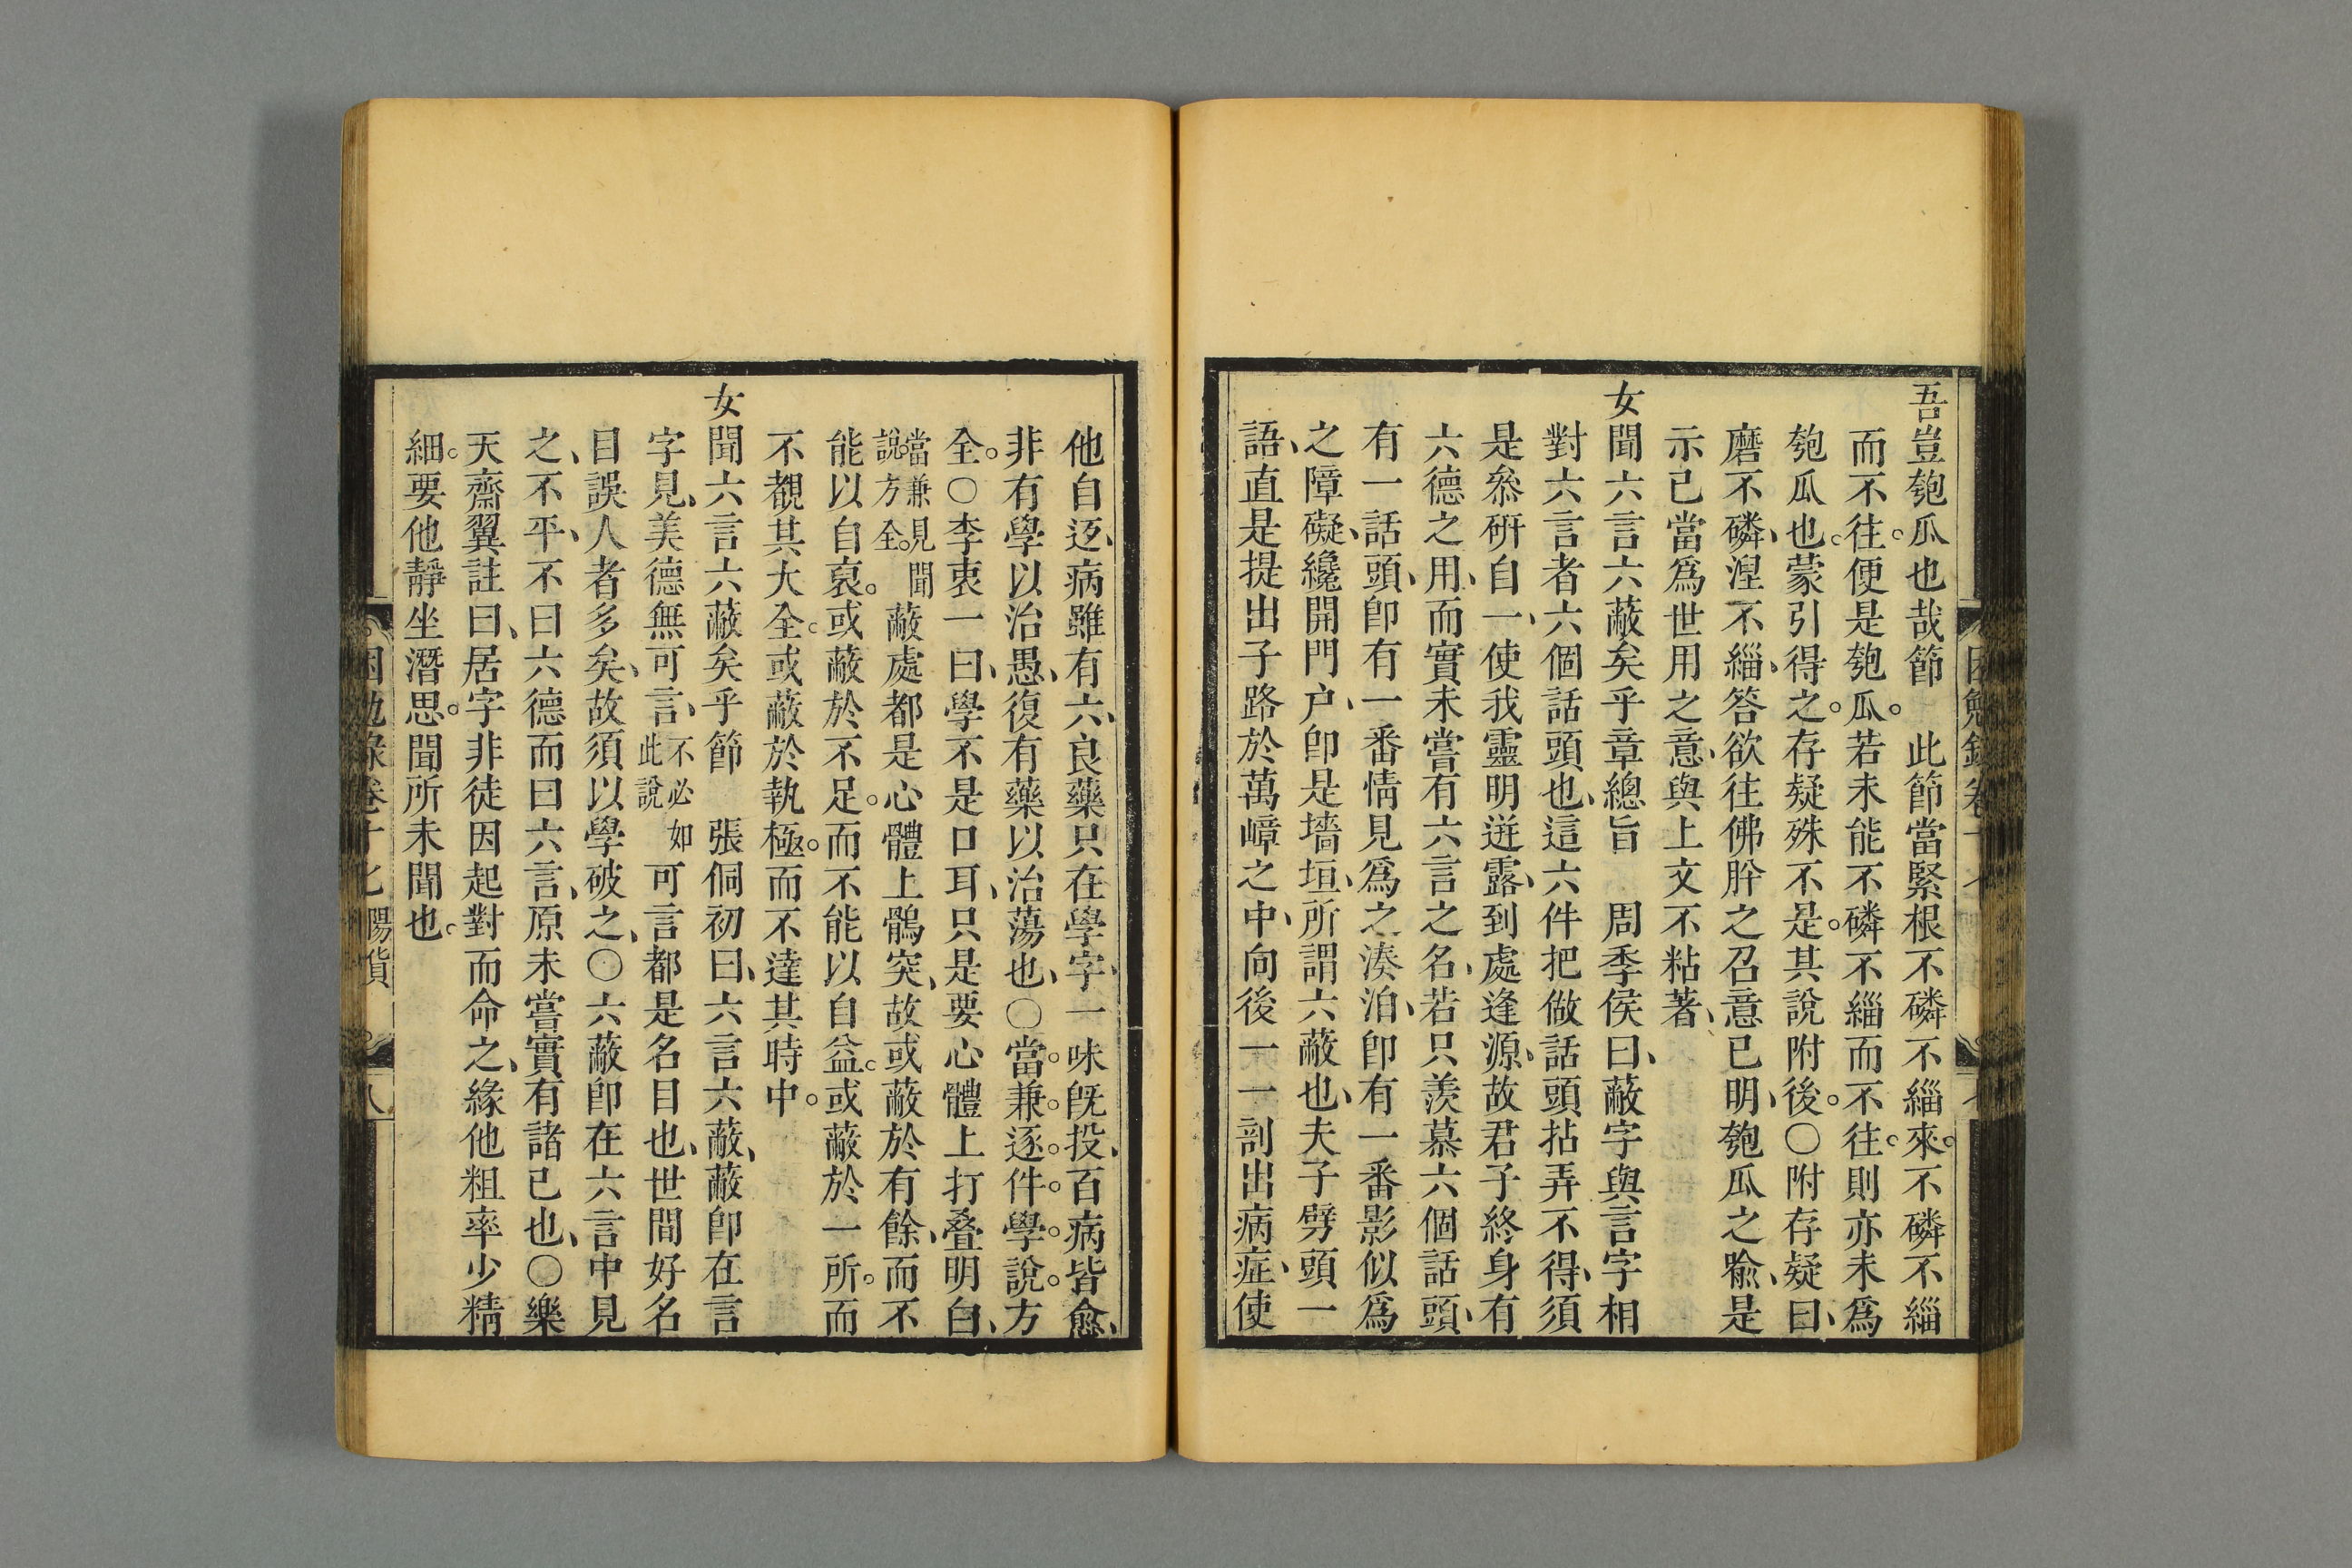 吾豈匏瓜也哉節　此節當緊根不磷不緇來。不磷不緇
而不往。便是匏瓜。若未能不磷不緇而不往。則亦未爲
匏瓜也。蒙引得之。存疑殊不是。其說附後。○附存疑曰、
磨不磷、涅不緇、答欲往佛肸之召意已明、匏瓜之喻、是
示已當爲世用之意、與上文不粘著、
女聞六言六蔽矣乎章總旨　周季侯曰、蔽字與言字相
對六言者六個話頭也、這六件把做話頭拈弄不得、須
是叅研自一、使我靈明迸露、到處逢源、故君子終身有
六德之用、而實未嘗有六言之名、若只羨慕六個話頭、
有一話頭、卽有一番情見爲之湊泊、卽有一番影似爲
之障礙、纔開門户、卽是墻垣、所謂六蔽也、夫子劈頭一
語、直是提出子路於萬嶂之中、向後一一剖出病症、使
他自返、病雖有六、良藥只在學字、一味旣投、百病皆愈、
非有學以治愚、復有藥以治蕩也、○當。兼。逐。件。學。說。方
全。○李衷一曰、學不是口耳、只是要心體上打叠明白、
當兼見聞
說。方全。
蔽處都是心體上鶻突、故或蔽於有餘、而不
能以自裒。或蔽於不足。而不能以自益。或蔽於一所。而
不覩其大全。或蔽於執極。而不達其時中。
女聞六言六蔽矣乎節　張侗初曰、六言六蔽、蔽卽在言
字見、美德無可言、
不必如
此說
可言都是名目也、世間好名
目誤人者多矣、故須以學破之、○六蔽卽在六言中見
之、不平、不曰六德而曰六言、原未嘗實有諸已也、○樂
天齋翼註曰、居字非徒因起對而命之、緣他粗率少精
細。要他靜坐潛思。聞所未聞也。
困勉錄卷十七 陽貨　八